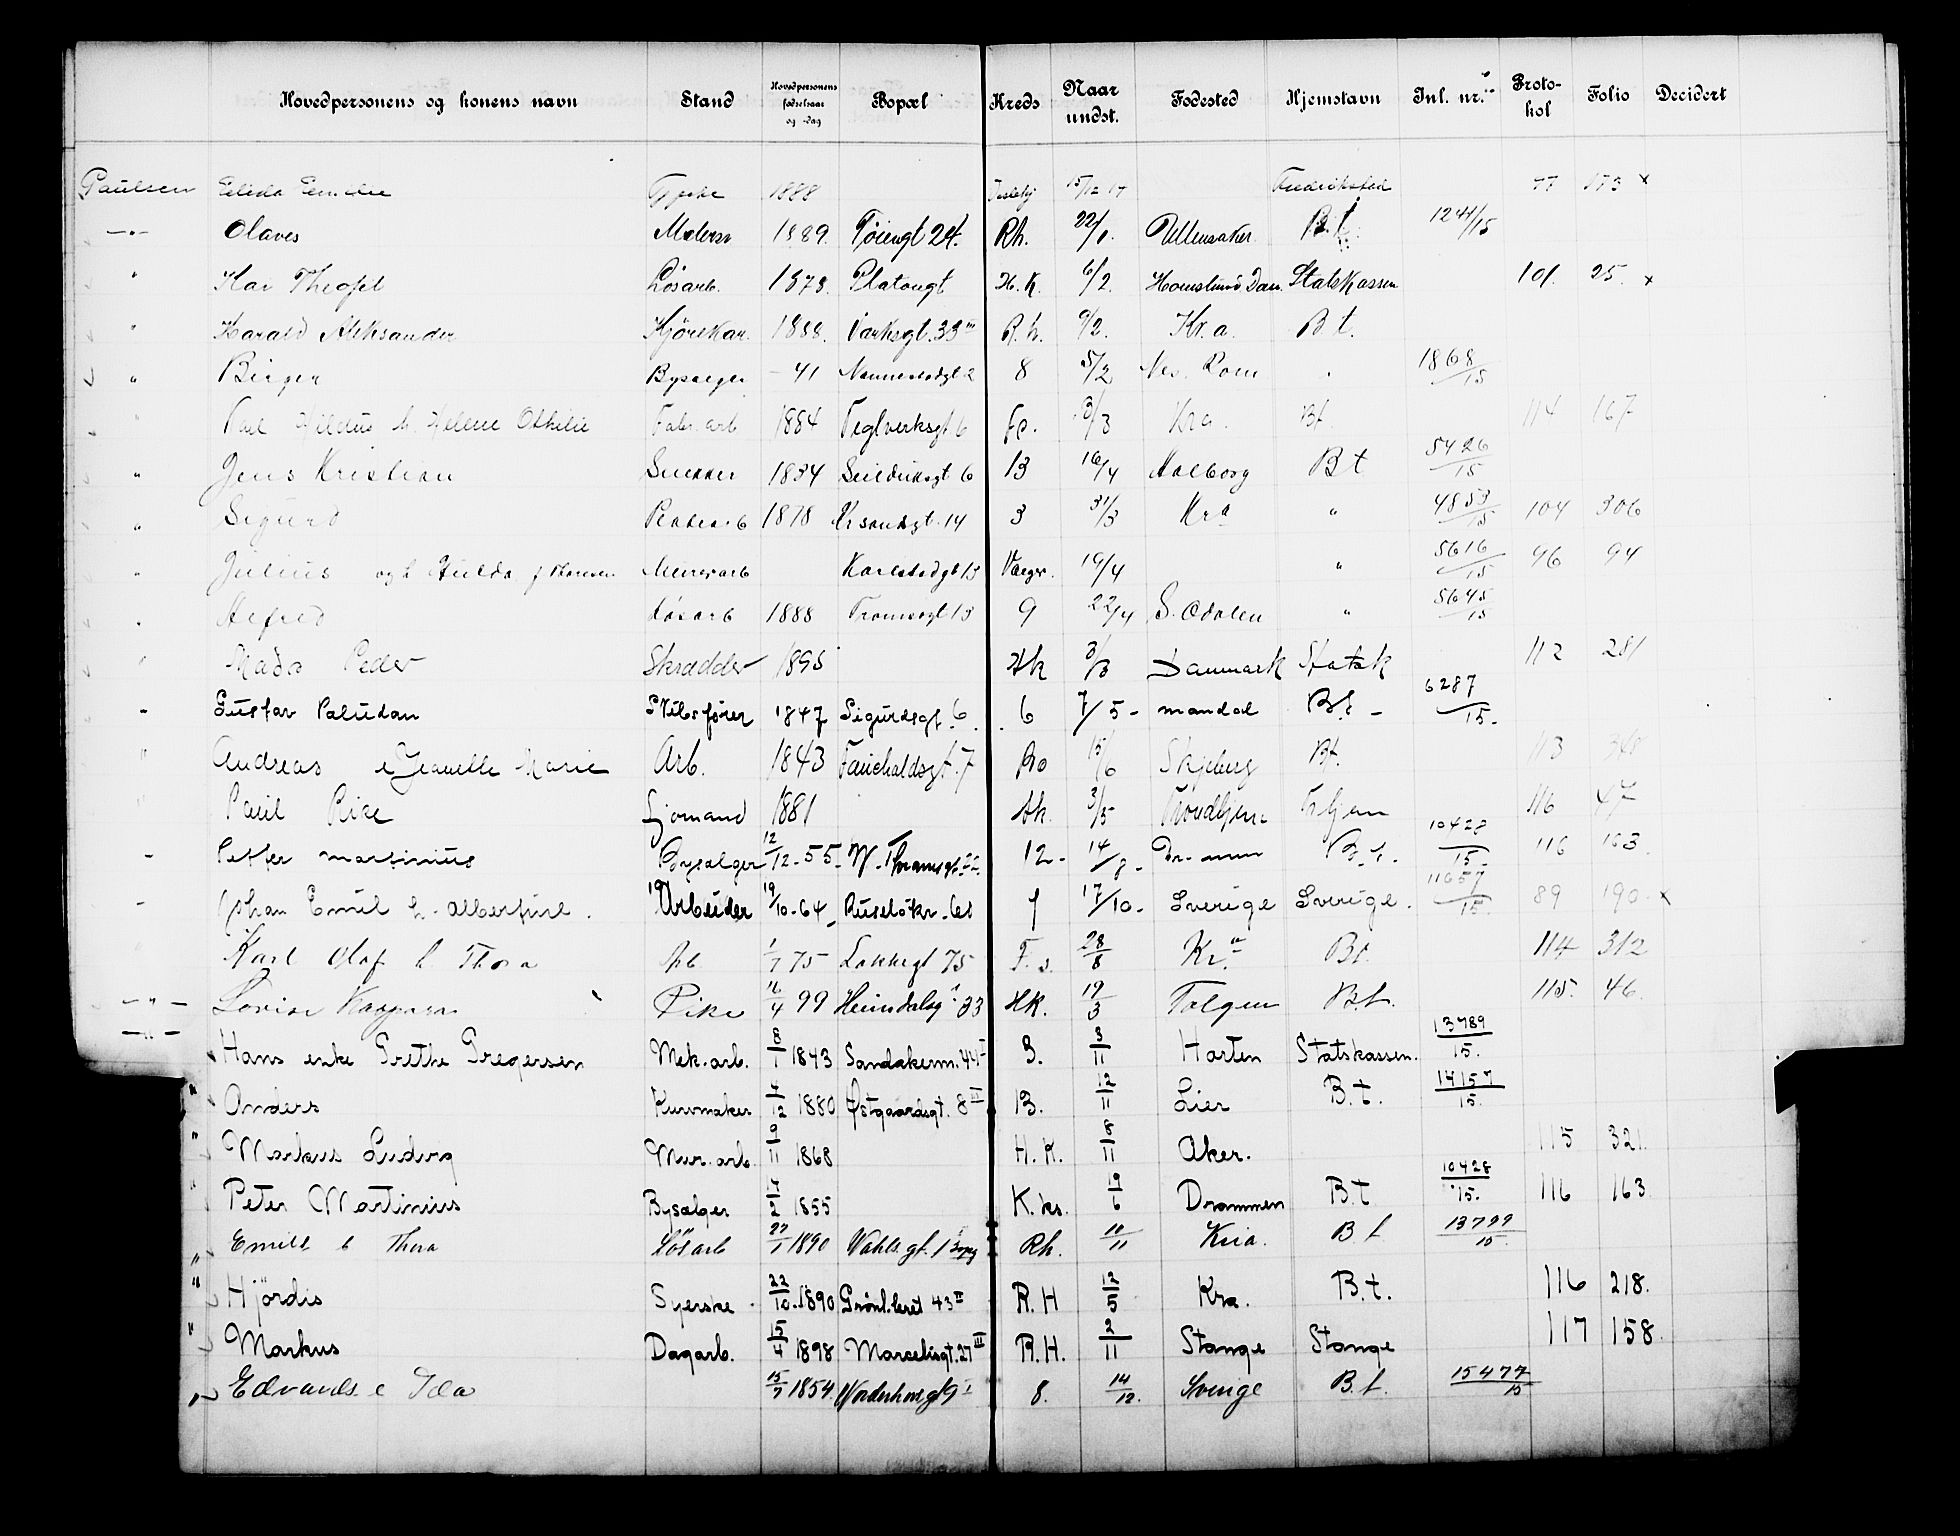 Hovedpersonens og konens navn Stand Hovedpersonens fødselsaar og -dag Bopæl Kreds Naar undst. Fødested Hjemstavn Inl. nr. Proto-kol Folio Decidert
Paulsen 1888 15/12 17 Fredrikstad 77 173 x
—"— Olaves 1889. Töiengt 24. Rh. 22/1. Ullensaker B.t. 1244/15
" Theofil Løsarb. 1878. Platougt H.K. 6/2. Dan. Statskassen 101. 25. x
" Harald Aleksander Kjørekar. 1888. Parksgt. 33 III R.h. 9/2. Kr.a. B t.
" Birger Bysælger – 41 Nannestadgt 2 8 5/2 Nes. Rom. " 1868/15
" h. Helene Othilie Fabr. arb 1884 Teglverksgt 6 Fp. 3/3 Kra. Bt. 114 167
" Jens Kristian Snekker 1834 6 13 16/4 Aalborg B t 5426/15
" Sigurd 1878 Kr sandsgt. 14 3 31/3 Kra " 4853/15 104 306
" Julius og h Hulda f Murerarb Karlstadgt 13 Værger. 19/4 " 5616/15 96 94
" Alfred Løsarb 1888 Tromsogt 13 9 22/4 S. Odalen " 5645/15
" Mads Peder Skrædder 1895 Hk 3/3 Danmark Statsk 112 281
" Gustav Paludan Skibsfører 1847 Sigurdsgt. 6. 6 7/5 - mandal B.t. – 6287/15.
" Andreas e Jeanette Marie Arb. 1843 Fauchaldsgt. 7 Bo 15/6 Skjeberg Bt. 113 340
" Paul Rike Sjømand 1881 Hk. 3/5 Trondhjem Thjem 116 47
" Petter martinius Bysælger 12/12 - 55 - W. Thranesgt. 22 12 - 14/8 - Dr-mmen B.t. 10428/15 - 116 163
" Johan Emil h. Albertine. Arbeider 19/10 - 64 - Ruseløkv. 68 7 17/10 - Sverige Sverige. 11657/15. 89 190. x
" Karl Olaf h Thora Arb. 1/7 75 Lakkegt 75 F.s. 28/8 Kr.a Bt. 114 312
— " — Lovise Pike 16/4 99 Heimdalsg 33 HK. 19/3 Tolgen B.t. 115. 46.
— " — Hans enke Grethe Gregersen Mek. arb. 8/1 1843 Sandakerv. 44 I 3. 3/11 Horten Statskassen. 13789/15.
" Anders Kurvmaker 4/12 1880 Østgaardsgt. 8 II 13. 12/11 Lier B.t. 14157/15.
" Markus Ludvig Mur. arb. 9/11 1868 H.K. 8/11 Aker. 115 321.
" Peter Martinius Bysælger 12/2 1855 K.ks. 19/6 Drammen B.t 10428/15. 116 163
" Emil h Thora Løsarb 27/1 1890 Wahls. gt. 1 Rh. 10/11 Kria. B t 13799/15.
" Hjördis Syerske 22/10 - 1890 Grønl. leret 43 II R.H 12/5 Kra. B.t. 116 218.
" Markus Dagarb. 15/4 1898 Marcelisgt. 27 III R.H. 2/11 Stange Stange 117 158.
" Edvards e Ida 15/7 1854 9 I 8. 14/12. Sverige B.t. 15477/15